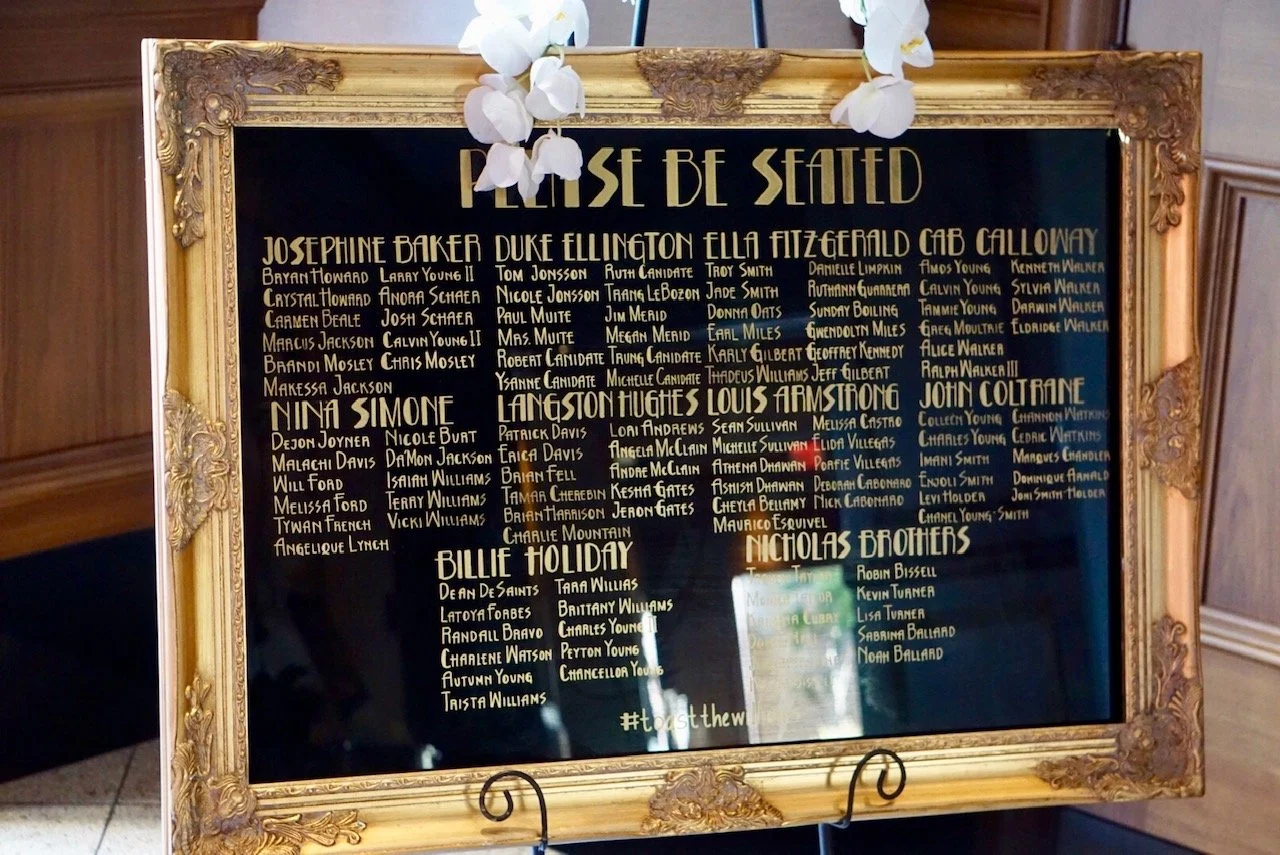 PLEASE BE SEATED
JOSEPHINE BAKER
BRYAN HOWARD
CRYSTAL HOWARD
CARMEN BEALE
MARCUS JACKSON
BRANDI MOSLEY
MAKESSA JACKSON
LARRY YOUNG II
ANORA SCHAER
JOSH SCHAER
CALVIN YOUNG II
CHRIS MOSLEY
DUKE ELLINGTON
TOM JONSSON
NICOLE JONSSON
PAUL MUITE
MRS. MUITE
ROBERT CANIDATE
YSANNE CANIDATE
RUTH CANIDATE
TRANG LEBOZON
JIM MERID
MEGAN MERID
TRUNG CANIDATE
MICHELLE CANIDATE
ELLA FITZGERALD
TROY SMITH
JADE SMITH
DONNA OATS
EARL MILES
KARLY GILBERT
THADEUS WILLIAMS
DANIELLE LIMPKIN
RUTHANN GUARRERA
SUNDAY BOILING
GWENDOLYN MILES
GEOFFREY KENNEDY
JEFF GILBERT
CAB CALLOWAY
AMOS YOUNG
CALVIN YOUNG
TAMMIE YOUNG
GREG MOULTRIE
ALICE WALKER
RALPH WALKER III
KENNETH WALKER
SYLVIA WALKER
DARWIN WALKER
ELDRIDGE WALKER
NINA SIMONE
DEJON JOYNER
MALACHI DAVIS
WILL FORD
MELISSA FORD
TYWAN FRENCH
ANGELIQUE LYNCH
NICOLE BURT
DA'MON JACKSON
ISAIAH WILLIAMS
TERRY WILLIAMS
VICKI WILLIAMS
LANGSTON HUGHES
PATRICK DAVIS
ERICA DAVIS
BRIAN FELL
TAMAR CHEREBIN
BRIAN HARRISON
CHARLIE MOUNTAIN
LORI ANDREWS
ANGELA MCCLAIN
ANDRE MCCLAIN
KESHA GATES
JERON GATES
LOUIS ARMSTRONG
SEAN SULLIVAN
MICHELLE SULLIVAN
ATHENA DHAWAN
ASHISH DHAWAN
CHEYLA BELLAMY
MAURICO ESQUIVEL
MELISSA CASTRO
ELIDA VILLEGAS
PORFIE VILLEGAS
DEBORAH CABONARO
NICK CABONARO
JOHN COLTRANE
COLLEEN YOUNG
CHARLES YOUNG
IMANI SMITH
ENJOLI SMITH
LEVI HOLDER
CHANEL YOUNG-SMITH
CHANNON WATKINS
CEDRIC WATKINS
MARQUES CHANDLER
DOMINIQUE ARNOLD
JONI SMITH-HOLDER
BILLIE HOLIDAY
DEAN DESAINTS
LATOYA FORBES
RANDALL BRAVO
CHARLENE WATSON
AUTUMN YOUNG
TRISTA WILLIAMS
TARA WILLIAS
BRITTANY WILLIAMS
CHARLES YOUNG II
PEYTON YOUNG
CHANCELLOR YOUNG
NICHOLAS BROTHERS
ROBIN BISSELL
KEVIN TURNER
LISA TURNER
SABRINA BALLARD
NOAH BALLARD